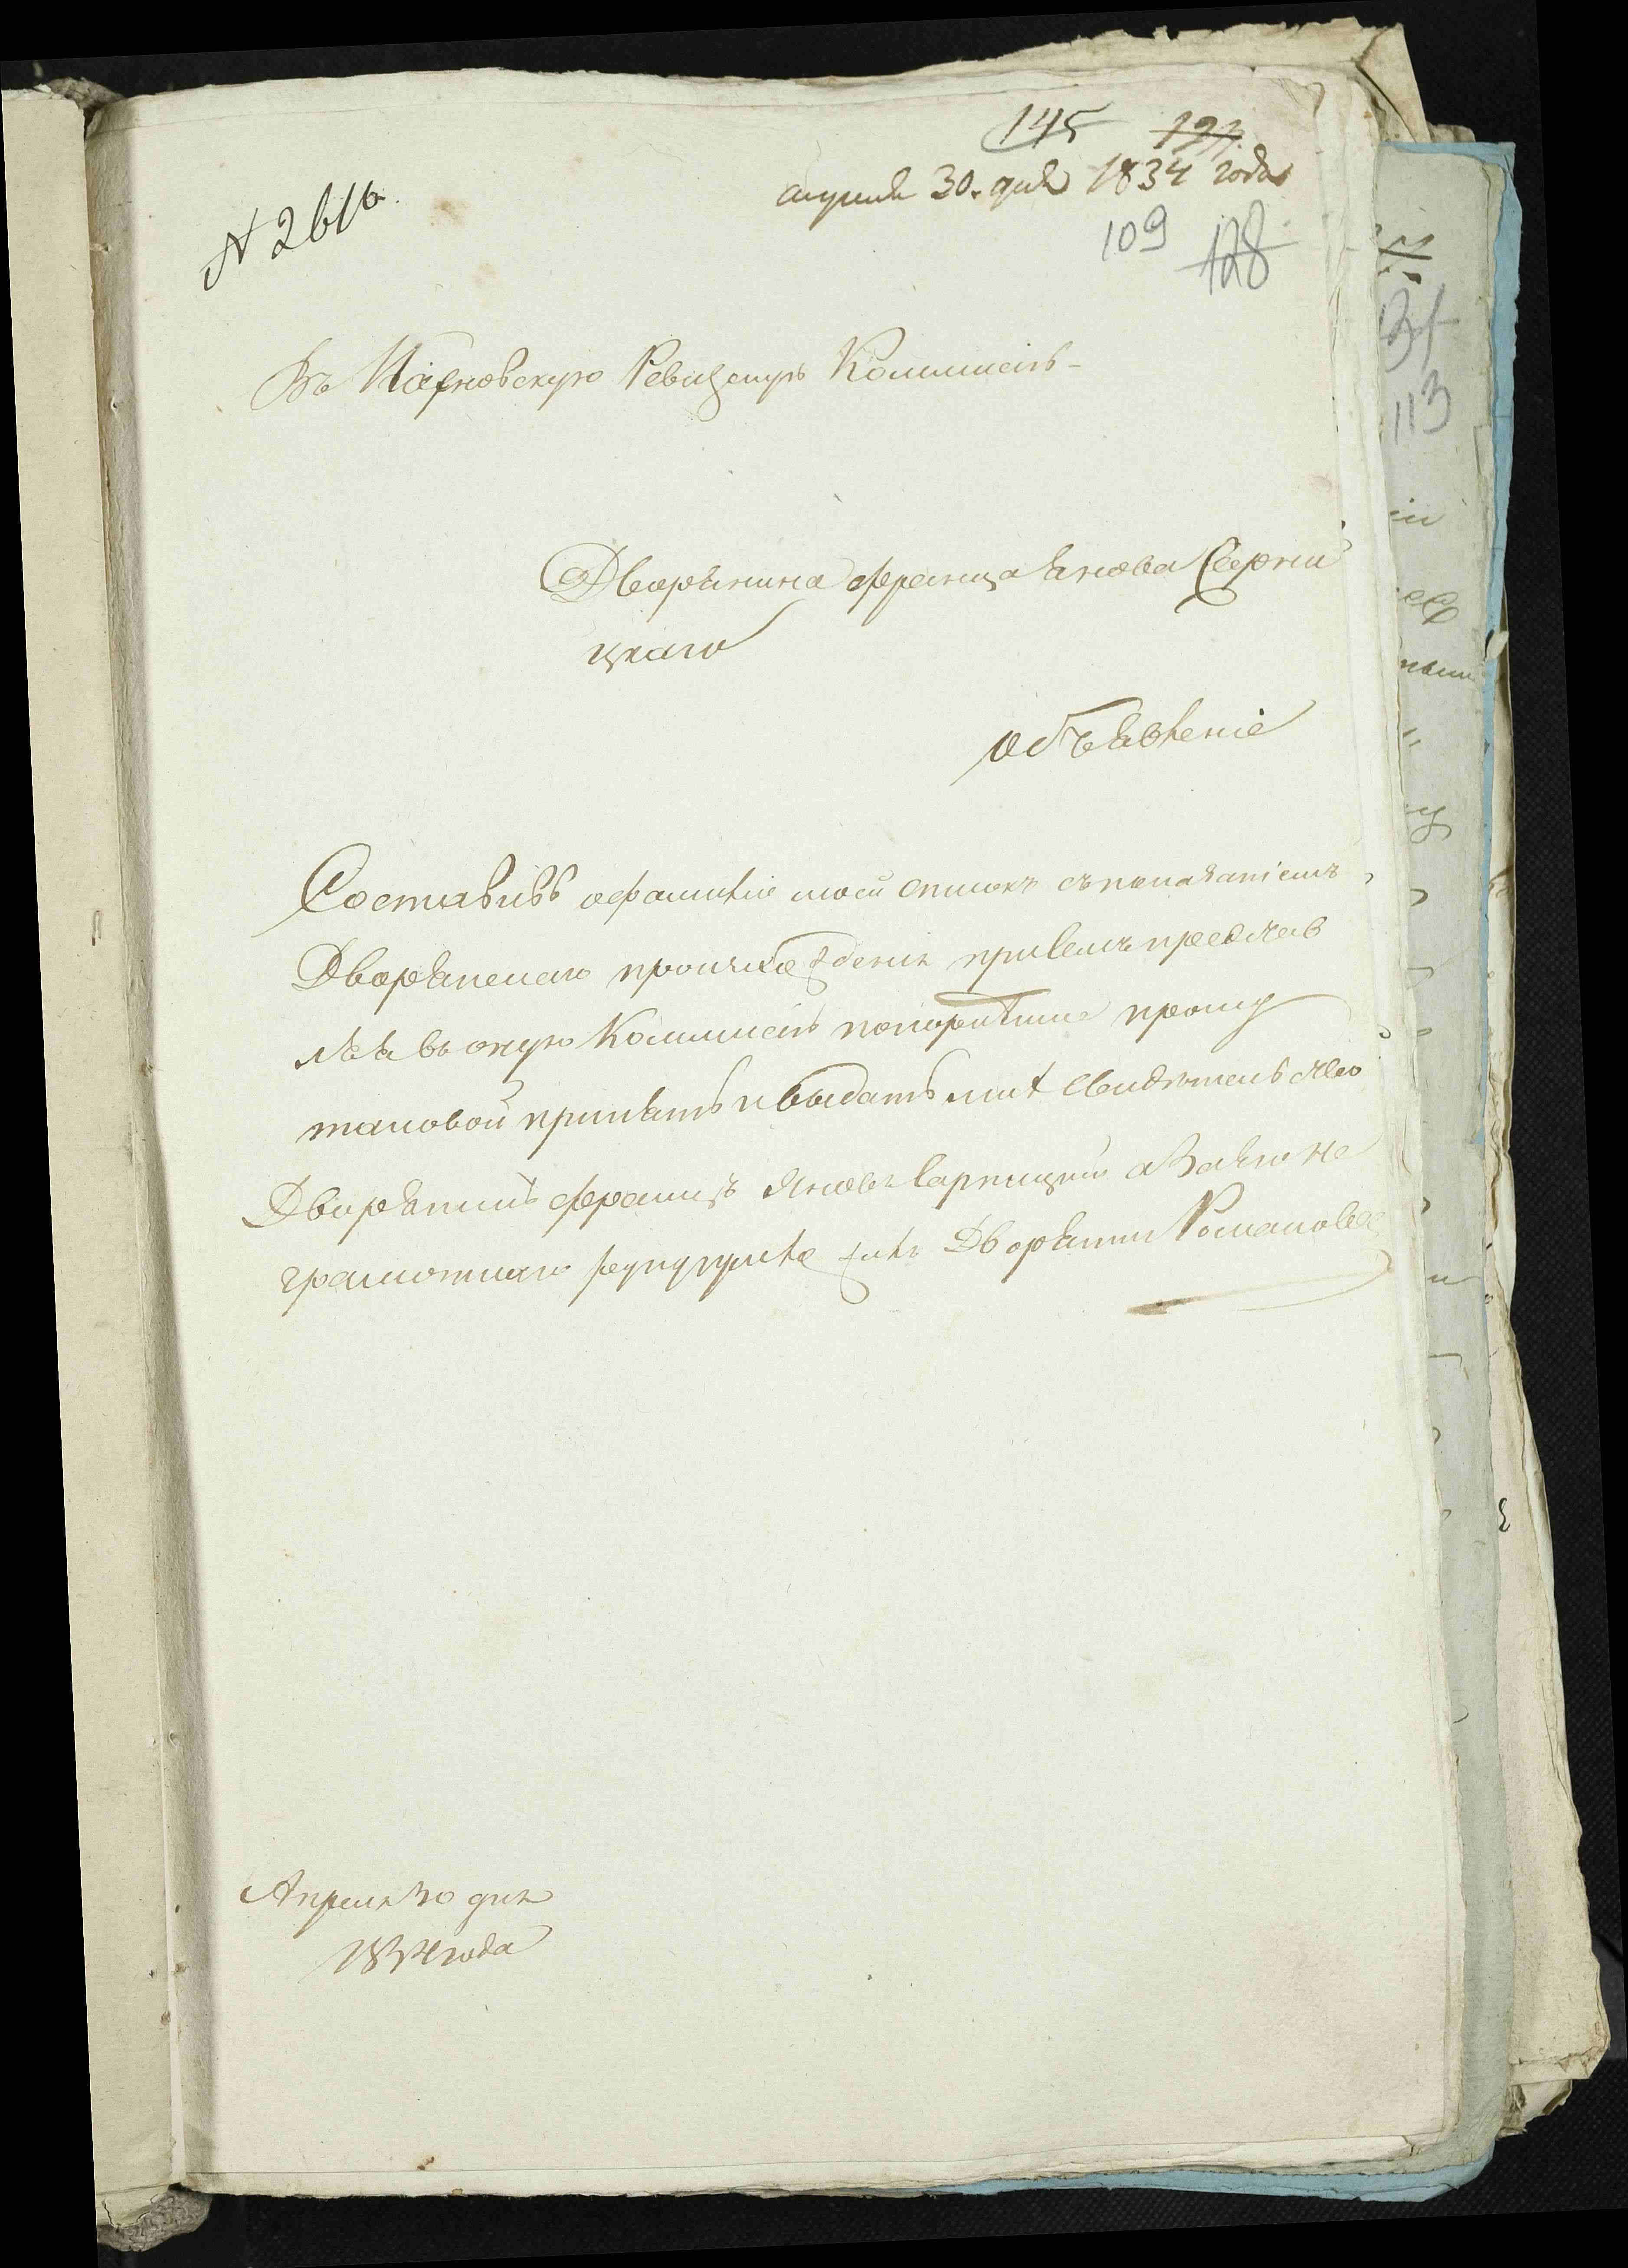 145 127.
апреля 30. дня 1834 года
N 2616.
109 128
Въ Ревизскую Коммисiю
Дворянина Франца Якова Сарни
цкаго
объявленiе
Составивъ о фамилiи моей списокъ съ показанiемъ
Дворянскаго происхожденiя при семъ представ
ляя въ оную Коммисiю покорнѣйше прошу
таковой принять и выдать мнѣ свидѣтельство
Дворянинъ Францъ Яковъ Сарницкiй а за его не
грамотнаго Дворянин Романовс
Апреля 30 дня
1834 года
113